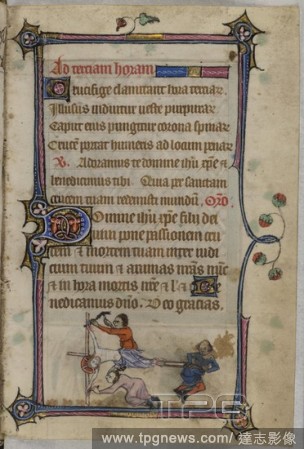 Ad terciam horam
Crucifige clamitant hora terciar
Illusus induitur veste purpurar
Caput eius pungitur corona spinar
Crucē portat humeris ad locum penar
V. Adoramus te domine ihū xp̄e &
benedicimus tibi. Quia per sanctam
crucem tuam redemisti mundū. Oro
Domine ihū xp̄e fili dei
viui pone passionem cru
cem & mortem tuam inter iudi
cium tuum & animas nr̄as nūc
& in hora mortis nr̄e & l' & Be
nedicamus dn̄o. Deo gracias.
TPG
www.tpgnews.com/達志影像